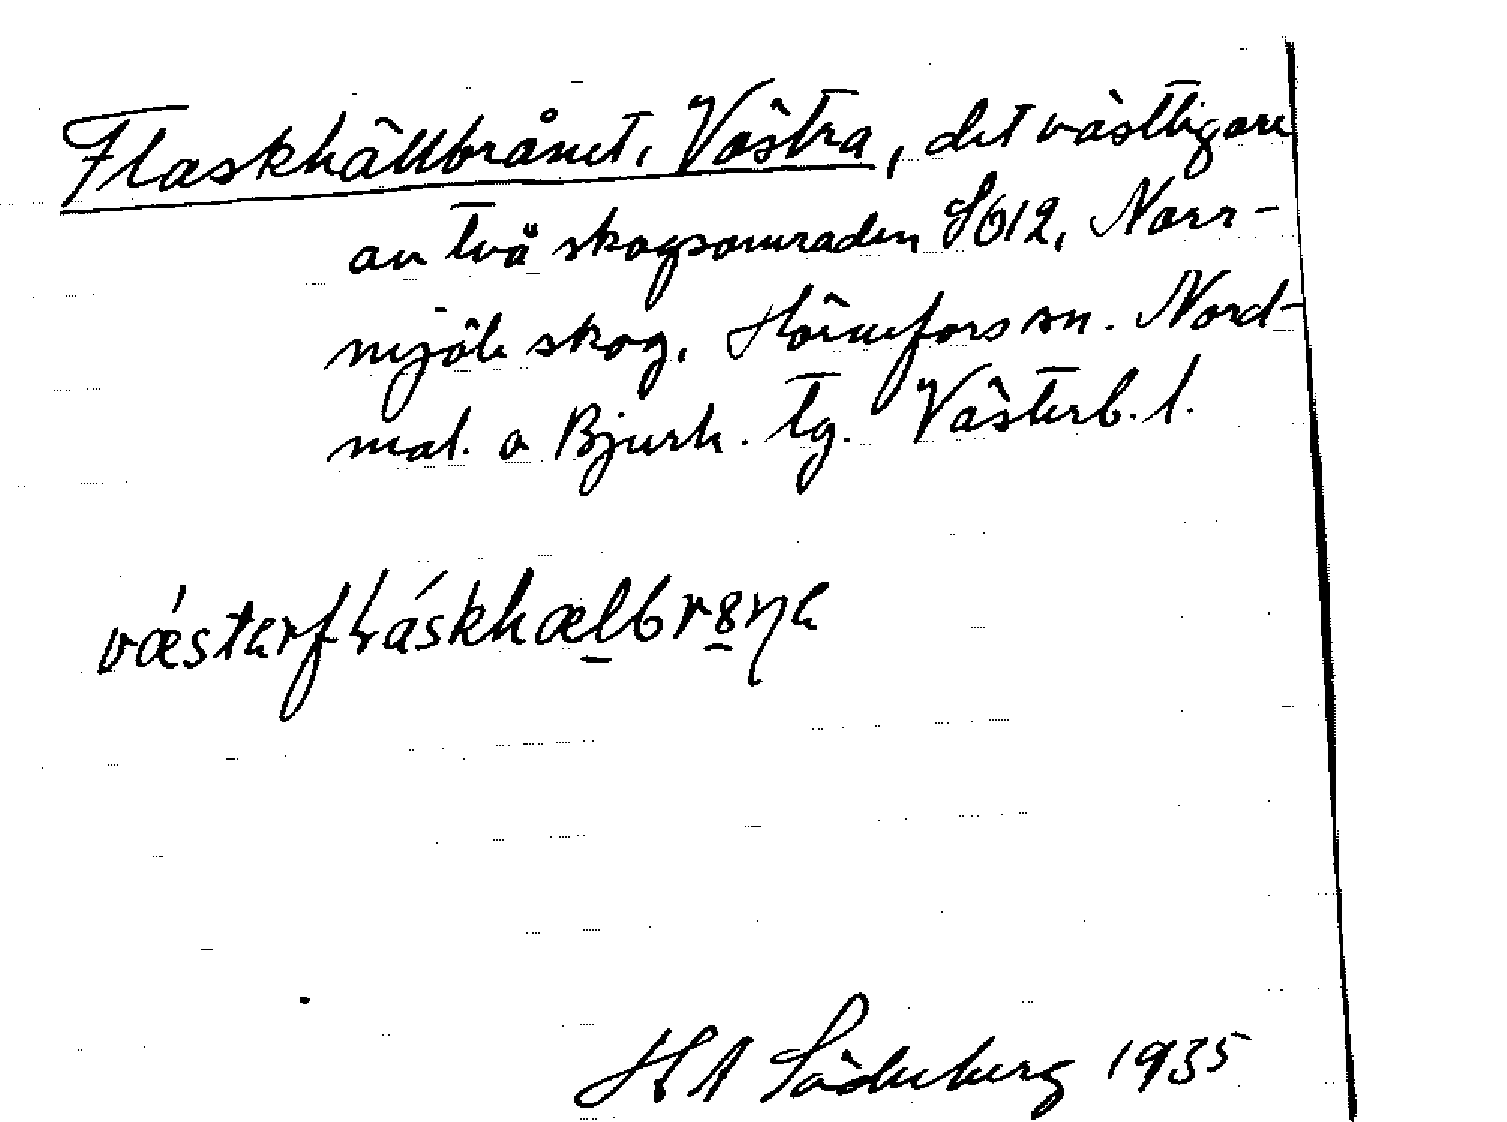 Flaskhällbrånet, Västra, det västligare
av två skogsområden S 612, Norr-
mjöle skog, Hörnefors sn. Nord-
mal. o Bjurh. tg. Västerb. l.
vǽstarfláskhælbrȣṇa
H A Söderberg 1935